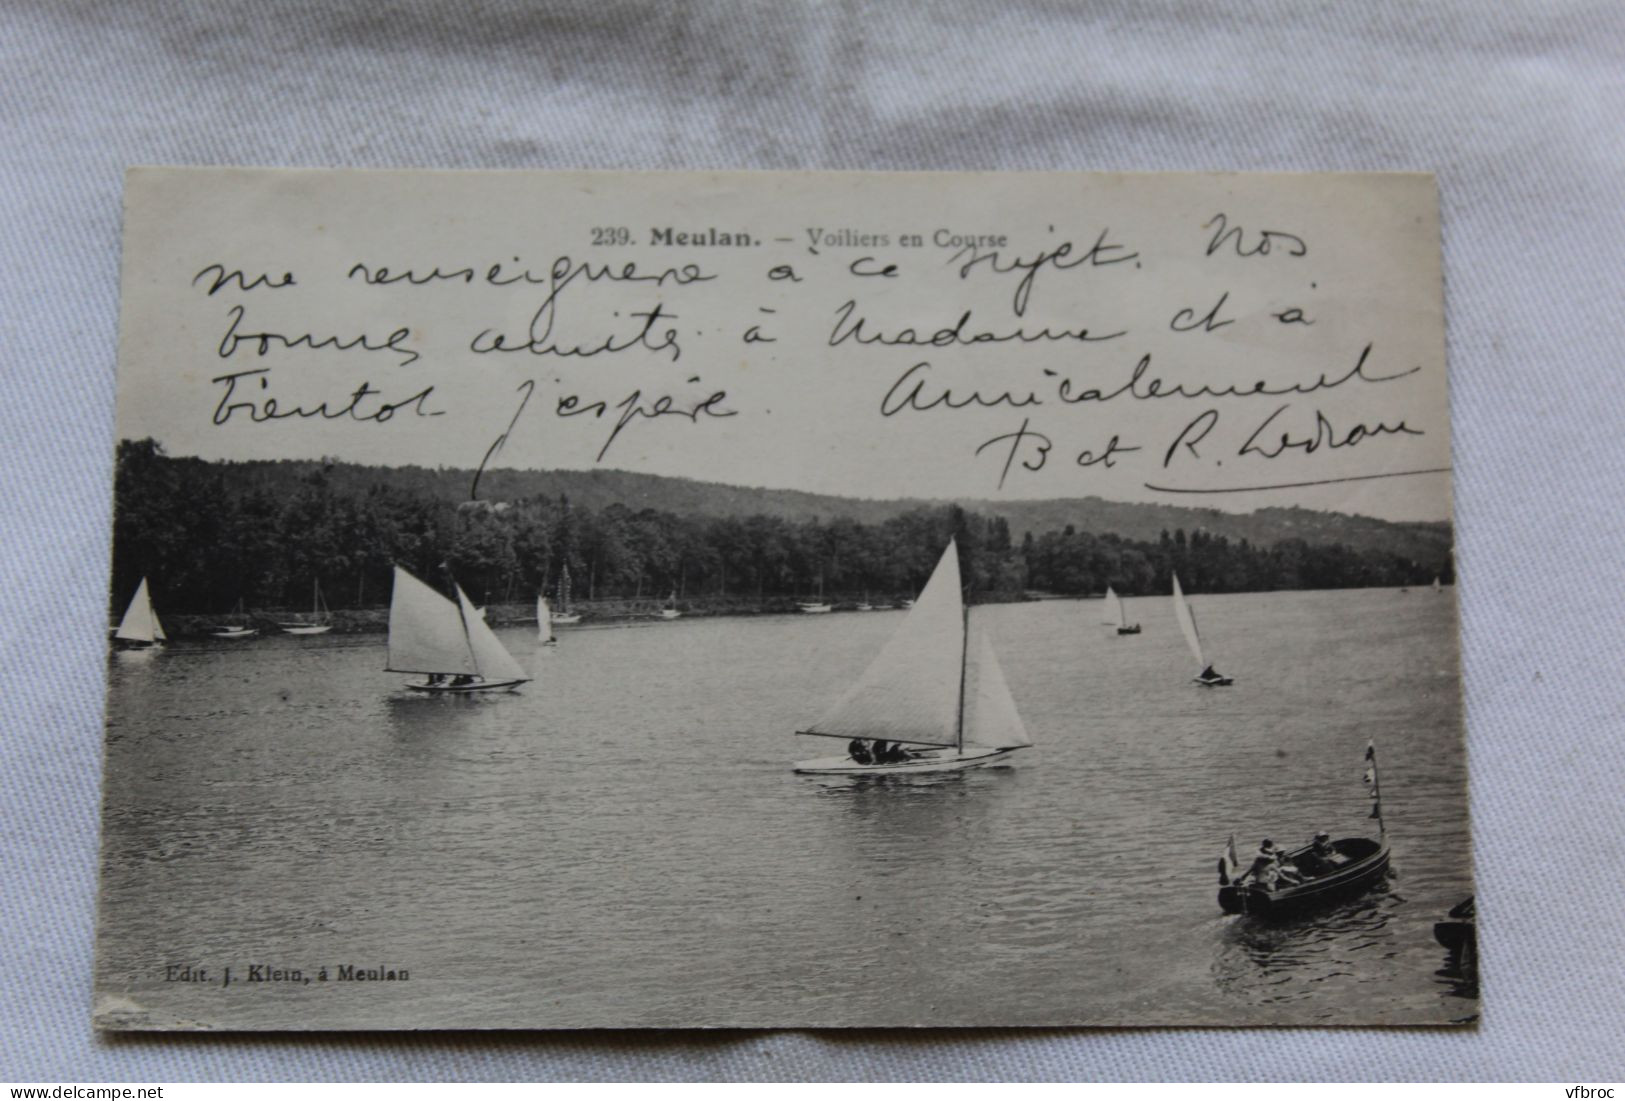 239. Meulan. – Voiliers en Course
me renseignere à ce sujet. Nos
bonnes amités à Madame et à
bientot j'espère. Amicalement
B et R. Ledran
Edit. J. Klein, à Meulan
vfbroc